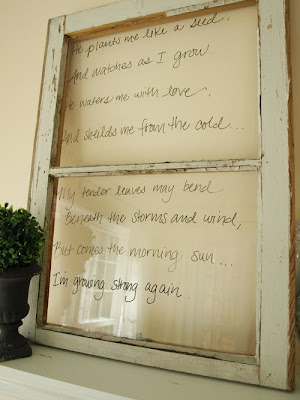 He plants me like a seed..
And watches as I grow.
He waters me with love.
And sheilds me from the cold...
My tender leaves may bend
Beneath the storms and wind,
But comes the morning sun...
I'm growing strong again.